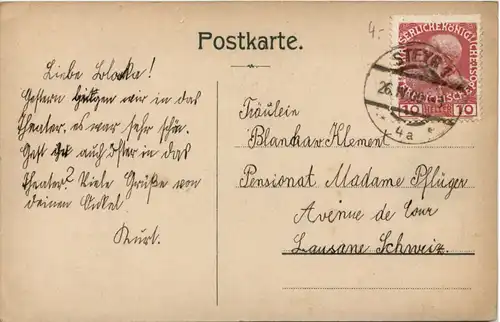 Postkarte.
4.-
Liebe Blanka!
Gestern gingen wir in das
Theater, es war sehr schön.
Gehst auch öfter in das
Theater? Viele Grüße von
deinen Onkel
Kurt.
STEYR 1
26.
4a
10 HELLER 10
Fräulein
Blanka v. Klement
Pensionat Madame Pflüger
Avenue de Cour
Lausane Schweiz.